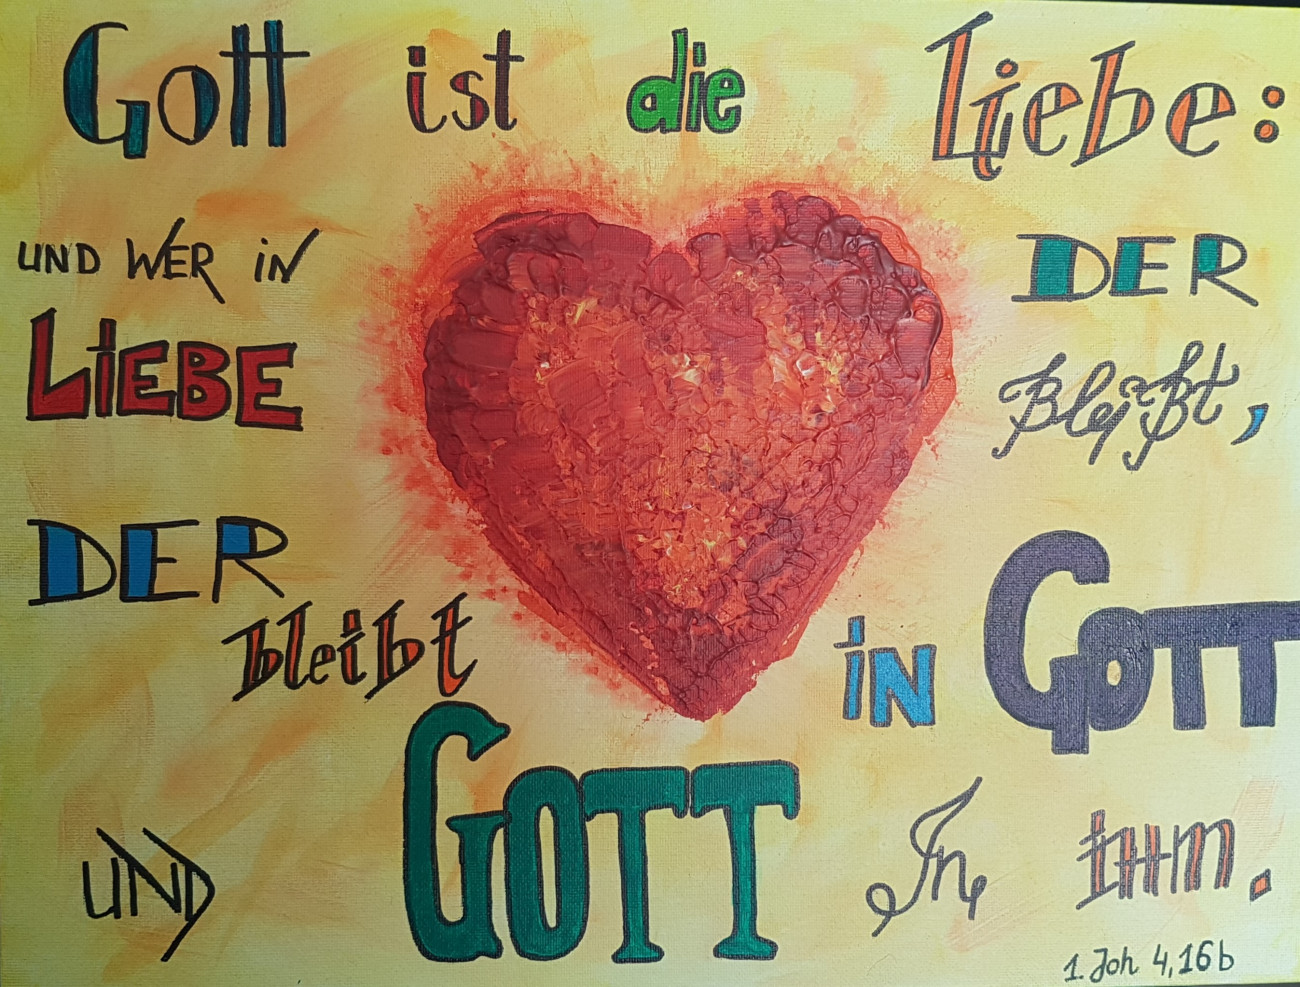 Gott ist die Liebe:
UND WER iN DER
LiEBE bleibt,
DER bleibt iN GOTT
UND GOTT In ihm.
1. Joh 4,16b